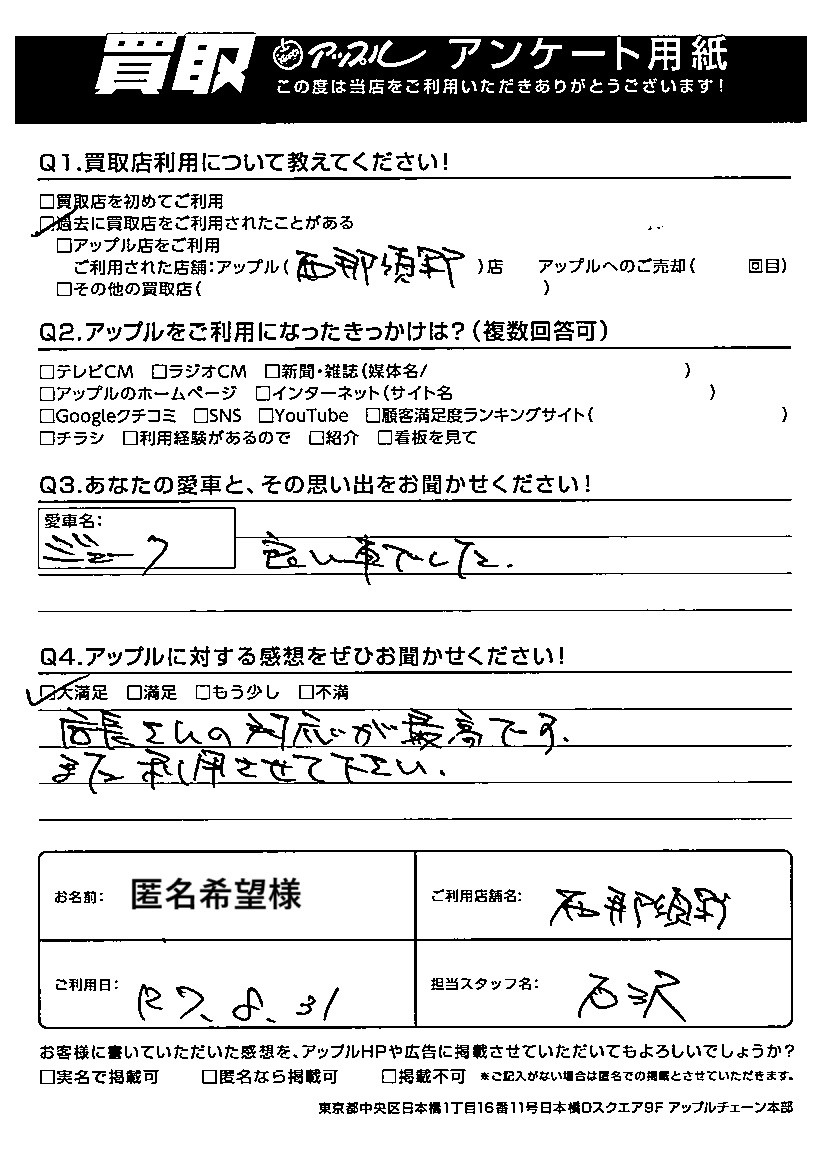 買取 アップル アンケート用紙
この度は当店をご利用いただきありがとうございます！
Q1.買取店利用について教えてください！
□買取店を初めてご利用
☑過去に買取店をご利用されたことがある
□アップル店をご利用
ご利用された店舗：アップル（西那須野）店　アップルへのご売却（　　回目）
□その他の買取店（　　）
Q2.アップルをご利用になったきっかけは？（複数回答可）
□テレビCM　□ラジオCM　□新聞・雑誌（媒体名/　　）
□アップルのホームページ　□インターネット（サイト名　　）
□Googleクチコミ　□SNS　□YouTube　□顧客満足度ランキングサイト（　　）
□チラシ　□利用経験があるので　□紹介　□看板を見て
Q3.あなたの愛車と、その思い出をお聞かせください！
愛車名：
ジューク　良い車でした.
Q4.アップルに対する感想をぜひお聞かせください！
☑大満足　□満足　□もう少し　□不満
店長さんの対応が最高です.
また利用させて下さい.
お名前：　匿名希望様　ご利用店舗名：　西那須野
ご利用日：　R7.8.31　担当スタッフ名：　石沢
お客様に書いていただいた感想を、アップルHPや広告に掲載させていただいてもよろしいでしょうか？
□実名で掲載可　□匿名なら掲載可　□掲載不可　※ご記入がない場合は匿名での掲載とさせていただきます。
東京都中央区日本橋1丁目16番11号日本橋Dスクエア9F アップルチェーン本部